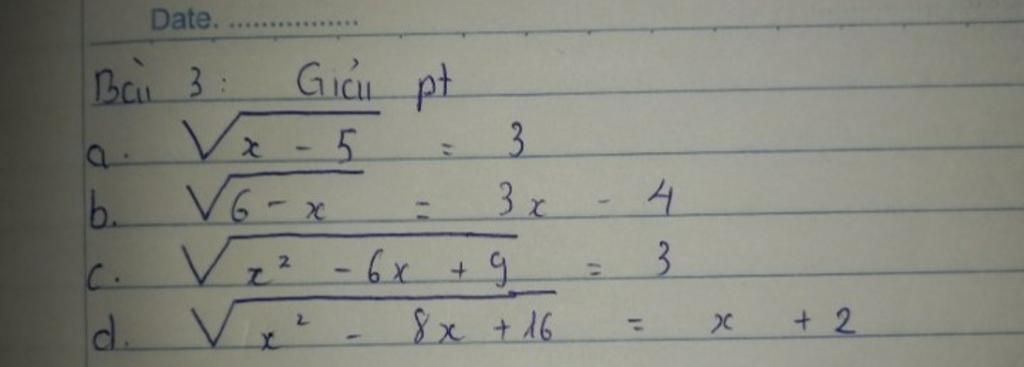 Date. ................
Bài 3 : Giải pt
a. √(x - 5) = 3
b. √(6 - x) = 3x - 4
c. √(x² - 6x + 9) = 3
d. √(x² - 8x + 16) = x + 2